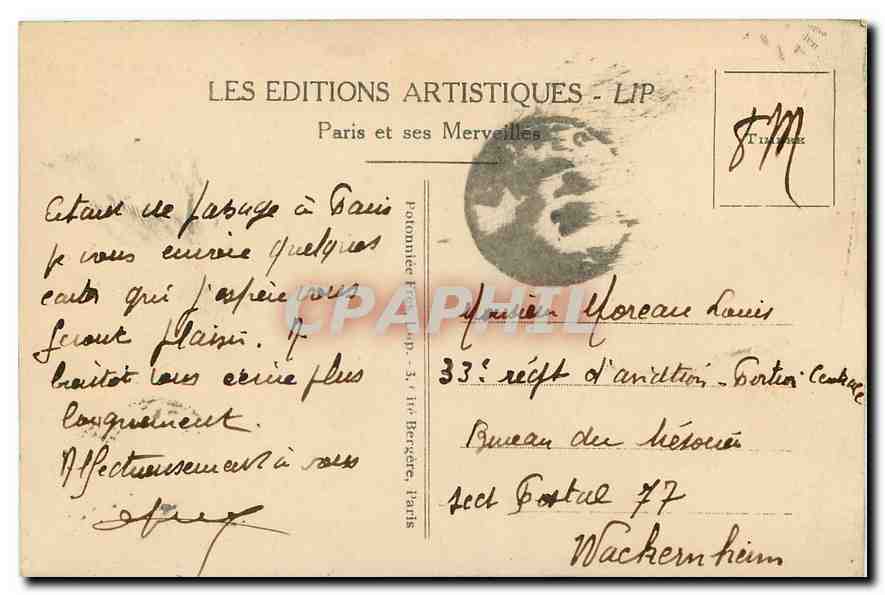 LES EDITIONS ARTISTIQUES - LIP
Paris et ses Merveilles
FM
TIMBRE
Etant de passage à Paris
je vous envoie quelques
cartes qui j'espère vous
feront plaisir. A
bientôt vous écrire plus
longuement.
Affectueusement à vous
Potonniée Frères, Imp. - 3, Cité Bergère, Paris
Monsieur Moreau Louis
33e régt d'aviation - Portion Centrale
Bureau du trésorier
Sect Postal 77
Wackernheim
CPAPHIL